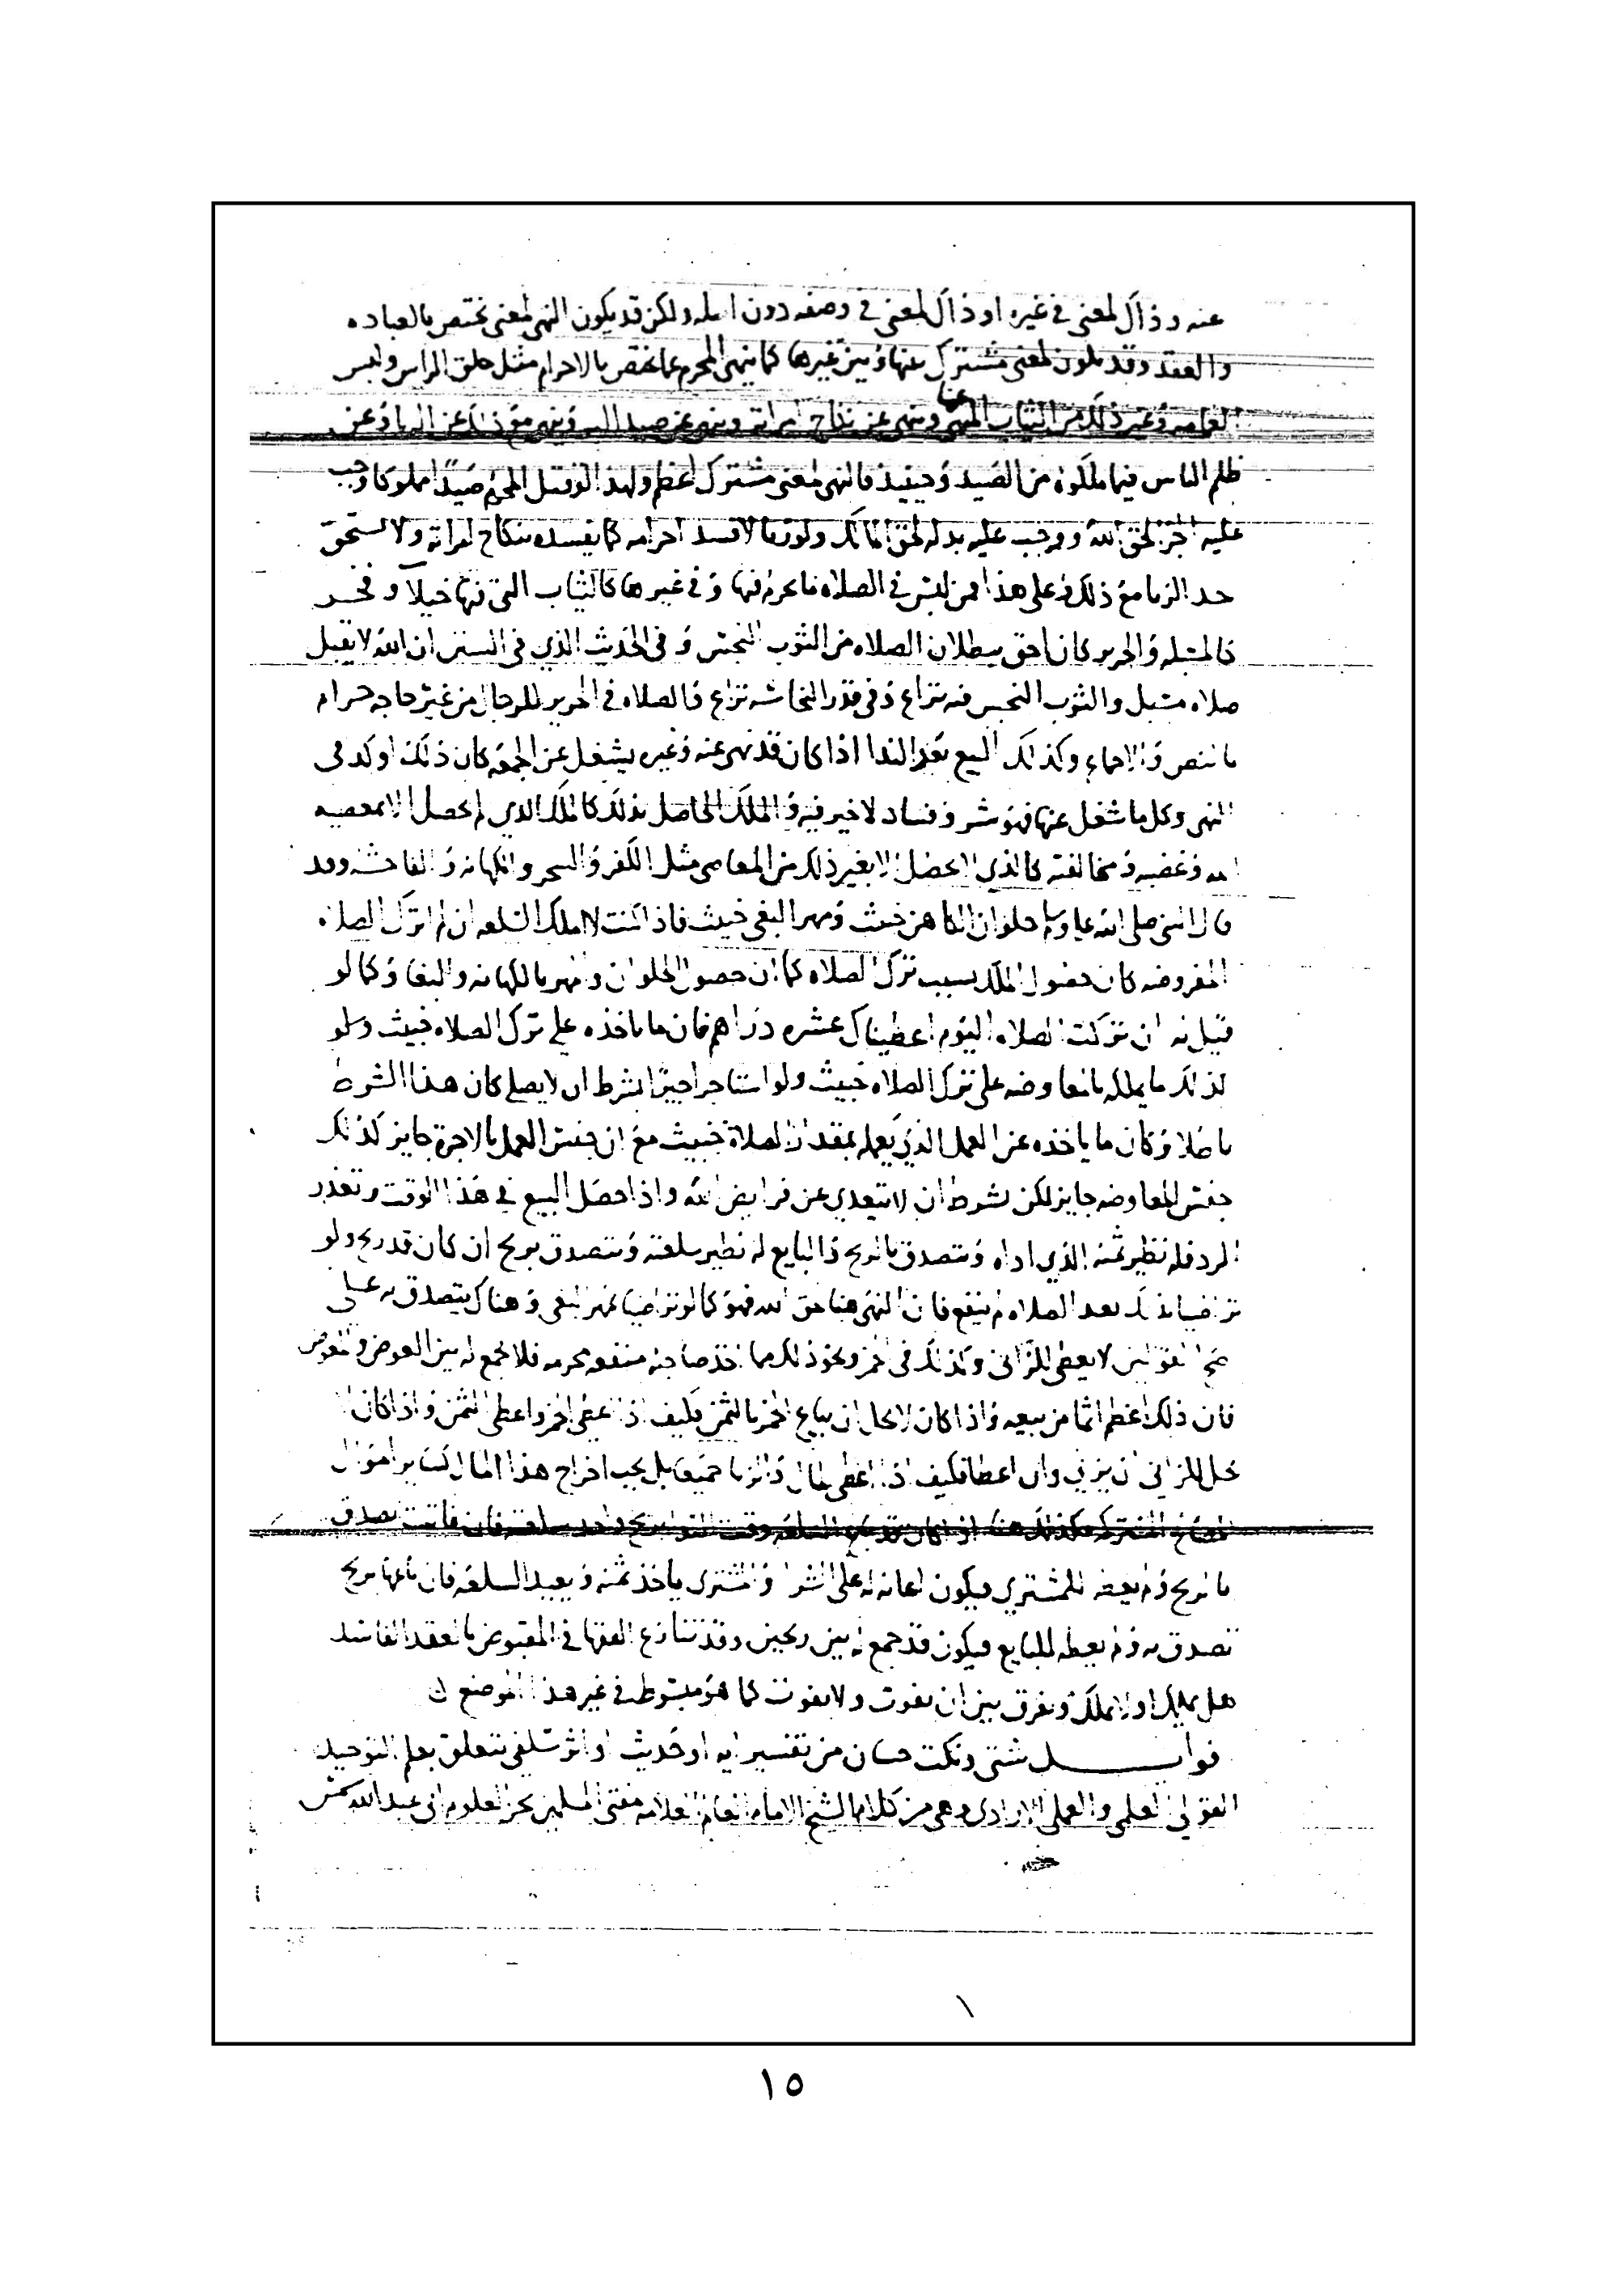 عنه وذاك لمعنى في غيره او ذاك لمعنى في وصفه دون اصله ولكن قد يكون النهي لمعنى يختص بالعباده
والعقد وقد يكون لمعنى مشترك بينها وبين غيرها كما ينهى المحرم عما يختص بالاحرام مثل حلق الراس ولبس
العمامه وغير ذلك من الثياب المنهي عنها وينهى عن نكاح امراته وينهى عن صيد البر وينهى مع ذلك عن الزنا وعن
ظلم الناس فيما ملكوه من الصيد وحينيذ فالنهي لمعنى مشترك اعظم ولهذا لو قتل المحرم صيدا مملوكا وجب
عليه الجزا لحق الله ووجب عليه بدله لحق المالك ولو زنا لافسد احرامه كما يفسده بنكاح امراته ولاستحق
حد الزنا مع ذلك وعلى هذا فمن لبس في الصلاه ما يحرم فيها وفي غيرها كالثياب التي فيها خيلا وفخر
كالمسبله والحرير كان احق ببطلان الصلاه من الثوب النجس وفي الحديث الذي في السنن ان الله لا يقبل
صلاه مسبل والثوب النجس فيه نزاع وفي قدر النجاسه نزاع والصلاه في الحرير للرجال من غير حاجه حرام
بالنص والاجماع وكذلك البيع بعد الندا اذا كان قد نهي عنه وغيره يشغل عن الجمعه كان ذلك اوكد في
النهي وكل ما شغل عنها فهو شر وفساد لا خير فيه والملك الحاصل بذلك كالملك الذي لم يحصل الا بمعصيه
الله وغضبه ومخالفته كالذي لا يحصل الا بغير ذلك من المعاصي مثل الكفر والسحر والكهانه والفاحشه وقد
قال النبي صلى الله عليه وسلم حلوان الكاهن خبيث ومهر البغي خبيث فاذا كنت لا املك السلعه ان لم اترك الصلاه
المفروضه كان حصول الملك بسبب ترك الصلاه كما ان حصول الحلوان والمهر بالكهانه والبغا وكما لو
قيل له ان تركت الصلاه اليوم اعطيناك عشره دراهم فان ما ياخذه على ترك الصلاه خبيث
كذلك ما يملكه بالمعاوضه على ترك الصلاه خبيث ولو استاجر اجيرا بشرط ان لا يصلي كان هذا الشرط
باطلا وكان ما ياخذه عن العمل الذي يعمله بمقدار الصلاة خبيث مع ان جنس العمل بالاجرة جايز كذلك
جنس المعاوضه جايز لكن بشرط ان لا يتعدى عن فرايض الله واذا حصل البيع في هذا الوقت وتعذر
الرد فله نظير ثمنه الذي اداه ويتصدق بالربح والبايع له نظير سلعته ويتصدق بربح ان كان قد ربح ولو
تراضيا بذلك بعد الصلاه لم ينفع فان النهي هنا حق الله فهو كما لو تراضيا بمهر البغي وهناك يتصدق به على
اصح القولين لا يعطى للزاني وكذلك في الخمر ونحو ذلك مما اخذ صاحبه منفعه محرمه فلا يجمع له بين العوض والمعوض
فان ذلك اعظم اثما من بيعه واذا كان لا يحل ان يباع الخمر بالثمن فكيف اذا اعطى الخمر واعطى الثمن واذا كان لا
يحل للزاني ان يزني وان اعطا فكيف اذا اعطى المال والزنا جميعا بل يجب اخراج هذا المال كساير اموال
المصالح المشتركه فكذلك هنا اذا كان قد باع السلعه وقت الندا بربح واخذ سلعته فان فاتت تصدق
بالربح ولم يعطه للمشتري فيكون اعانه له على الشرا والمشتري ياخذ ثمنه ويعيد السلعه فان باعها بربح
تصدق به ولم يعطه للبايع فيكون قد جمع له بين ربحين وقد تنازع الفقها في المقبوض بالعقد الفاسد
هل يملك او لا يملك ويفرق بين ان يفوت ولا يفوت كما هو مبسوط في غير هذا الموضع
فوايد شتى ونكت حسان من تفسير ايه او حديث او اثر سلفي تتعلق بعلم التوحيد
القولي العلمي والعملي الارادي وهي من كلام الشيخ الامام العالم العلامه مفتي المسلمين بحر العلوم ابي عبدالله شمس
١
١٥